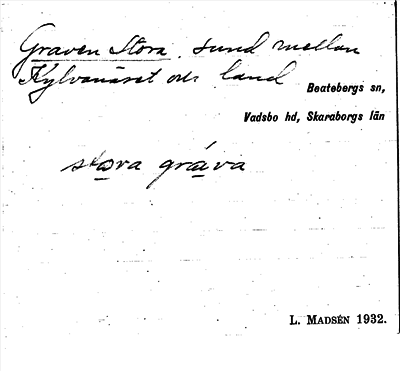 Graven Stora. sund mellan
Kylvanäset och land
Beatebergs sn,
Vadsbo hd, Skaraborgs län
stora gráva
L. MADSÉN 1932.